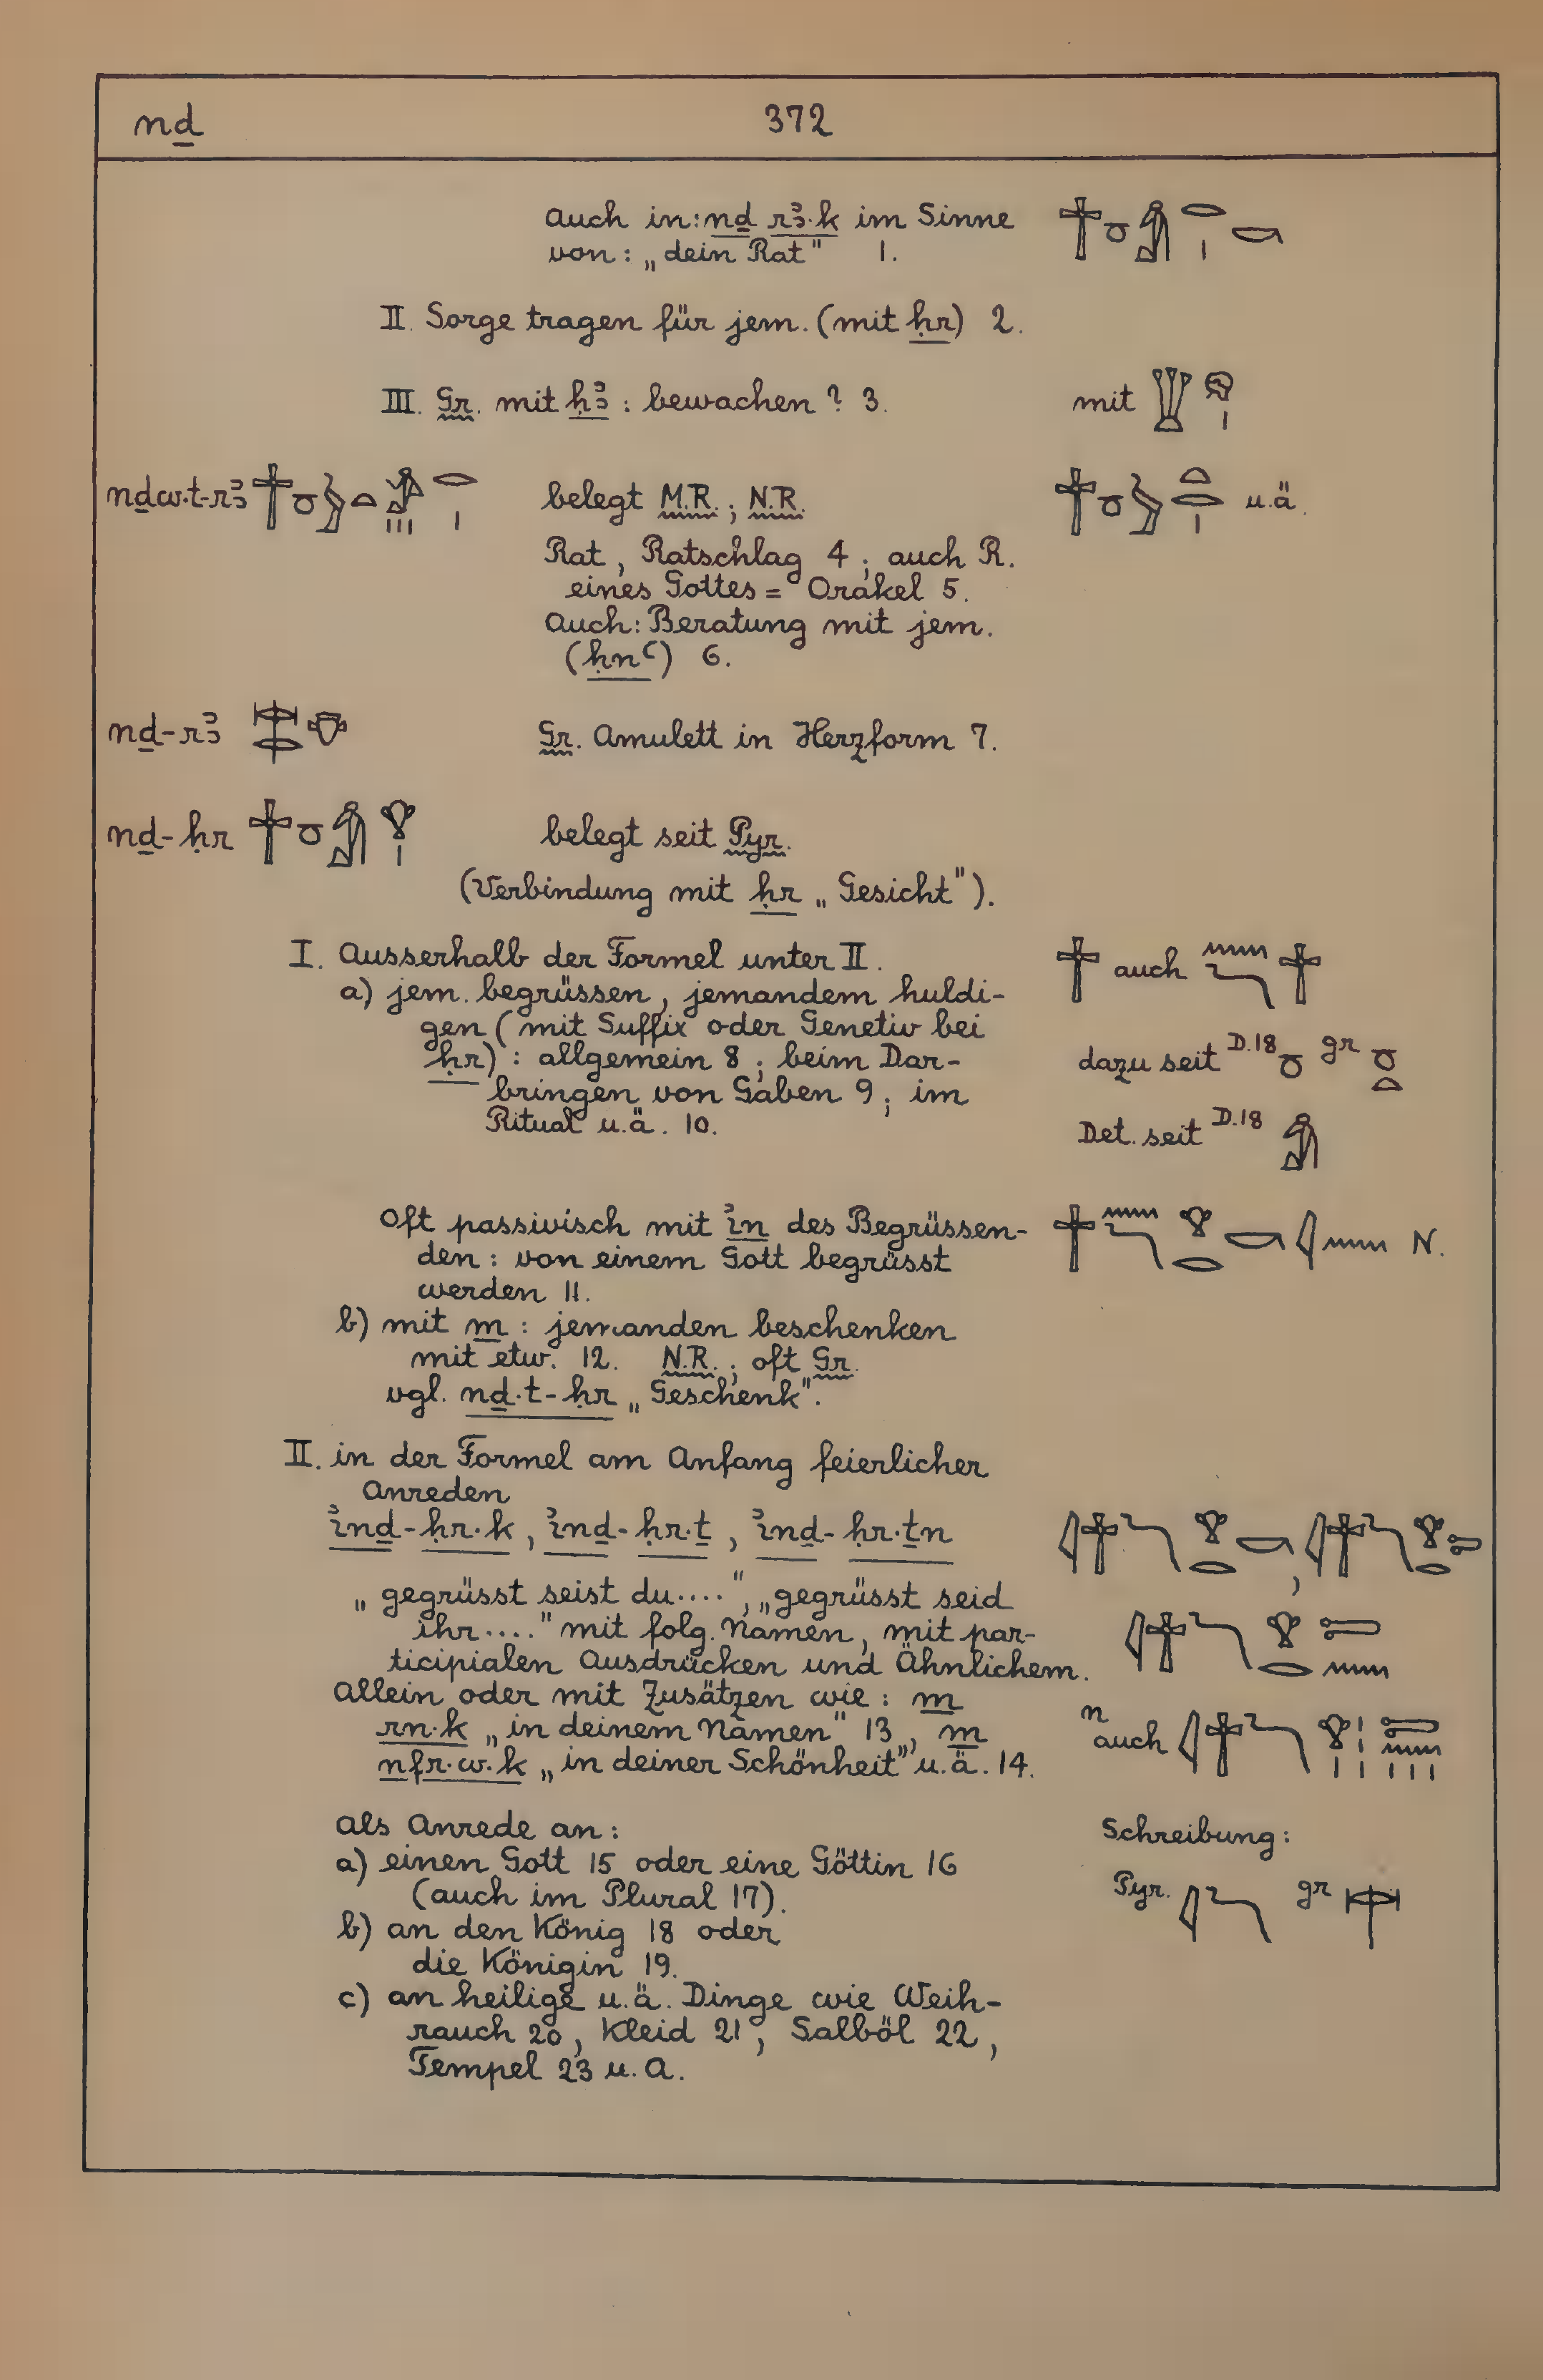 nḏ 372
auch in: nḏ rꜣ·k im Sinne
von: „dein Rat" 1.
II. Sorge tragen für jem. (mit ḥr) 2.
III. Gr. mit ḥꜣ : bewachen? 3. mit
nḏw·t-rꜣ belegt M.R.; N.R. u.ä.
Rat, Ratschlag 4; auch R.
eines Gottes = Orakel 5.
Auch: Beratung mit jem.
(ḥnꜥ) 6.
nḏ-rꜣ Gr. Amulett in Herzform 7.
nḏ-ḥr belegt seit Pyr.
(Verbindung mit ḥr „Gesicht").
I. Ausserhalb der Formel unter II. auch
a) jem. begrüssen, jemandem huldi-
gen (mit Suffix oder Genetiv bei
ḥr) : allgemein 8; beim Dar- dazu seit D.18 gr
bringen von Gaben 9; im
Ritual u.ä. 10. Det. seit D.18
Oft passivisch mit ı͗n des Begrüssen- N.
den: von einem Gott begrüsst
werden 11.
b) mit m : jemanden beschenken
mit etw. 12. N.R.; oft Gr.
vgl. nḏ·t-ḥr „Geschenk".
II. in der Formel am Anfang feierlicher
Anreden
ı͗nḏ-ḥr·k, ı͗nḏ-ḥr·ṯ, ı͗nḏ-ḥr·ṯn ,
„gegrüsst seist du....", „gegrüsst seid
ihr...." mit folg. Namen, mit par-
ticipialen Ausdrücken und Ähnlichem.
Allein oder mit Zusätzen wie: m
rn·k „in deinem Namen" 13, m n auch
nfr·w·k „in deiner Schönheit" u.ä. 14.
Als Anrede an: Schreibung:
a) einen Gott 15 oder eine Göttin 16
(auch im Plural 17). Pyr. gr
b) an den König 18 oder
die Königin 19.
c) an heilige u.ä. Dinge wie Weih-
rauch 20, Kleid 21, Salböl 22,
Tempel 23 u.A.